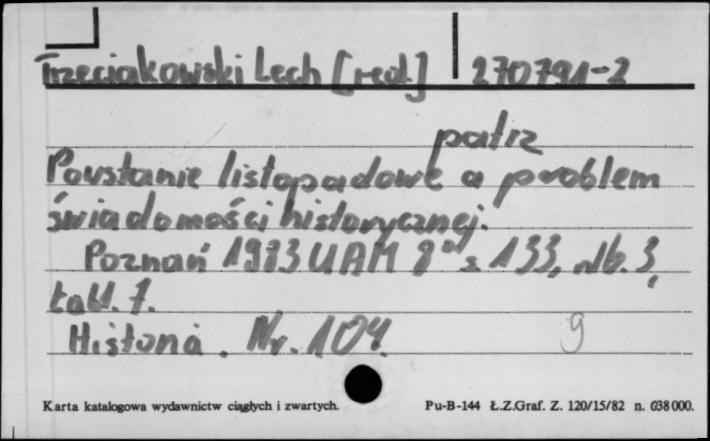 Trzeciakowski Lech [red.] 270791-2
patrz
Powstanie listopadowe a problem
świadomości historycznej.
Poznań 1983 UAM 8° s. 133, nlb. 3,
tabl. 7.
Historia. Nr. 104.
9
Karta katalogowa wydawnictw ciągłych i zwartych. Pu-B-144 Ł.Z.Graf. Z. 120/15/82 n. 638000.